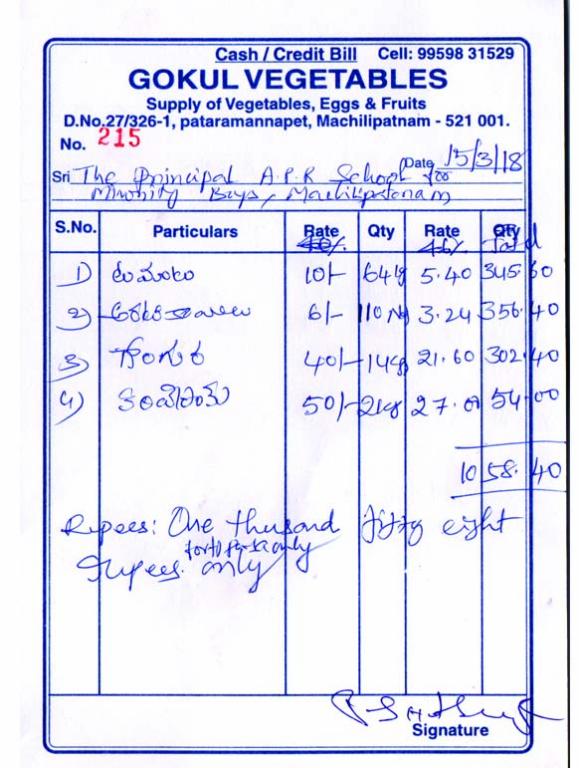 Cash / Credit Bill Cell: 99598 31529
GOKUL VEGETABLES
Supply of Vegetables, Eggs & Fruits
D.No.27/326-1, pataramannapet, Machilipatnam - 521 001.
No. 215
Date 15/3/18
Sri The Principal A.P.R School for
Minority Boys, Machilipatanam
S.No. Particulars Rate Qty Rate Qty
46% Total
1) టమాటం 10/- 64kg 5.40 345.60
2) అరటికాయలు 6/- 110 No 3.24 356.40
3) గోంగూర 40/- 14kg 21.60 302.40
4) కరివేపాకు 50/- 2kg 27.00 54.00
1058.40
Rupees: One thusand fifty eight
forty paisa only
Rupees only
Signature